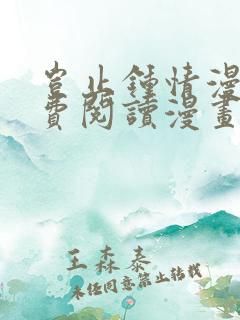 岂止鍾情漫
費閱讀漫畫
王森泰
未经同意禁止转载